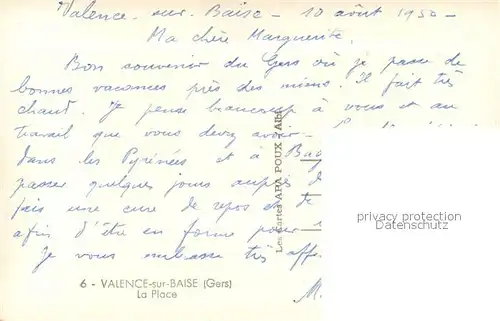 Valence-sur-Baïse - 10 août 1950 -
Ma chère Marguerite,
Bon souvenir du Gers où je passe de
bonnes vacances près des miens. Il fait très
chaud. Je pense beaucoup à vous et au
travail que vous devez avoir -
dans les Pyrénées et à Bag
passer quelques jours auprès d
fais une cure de repos et de
afin d'être en forme pour
Je vous embrasse très affe
M.
Les Cartes APA POUX - Albi
privacy protection
Datenschutz
6 - VALENCE-sur-BAISE (Gers)
La Place